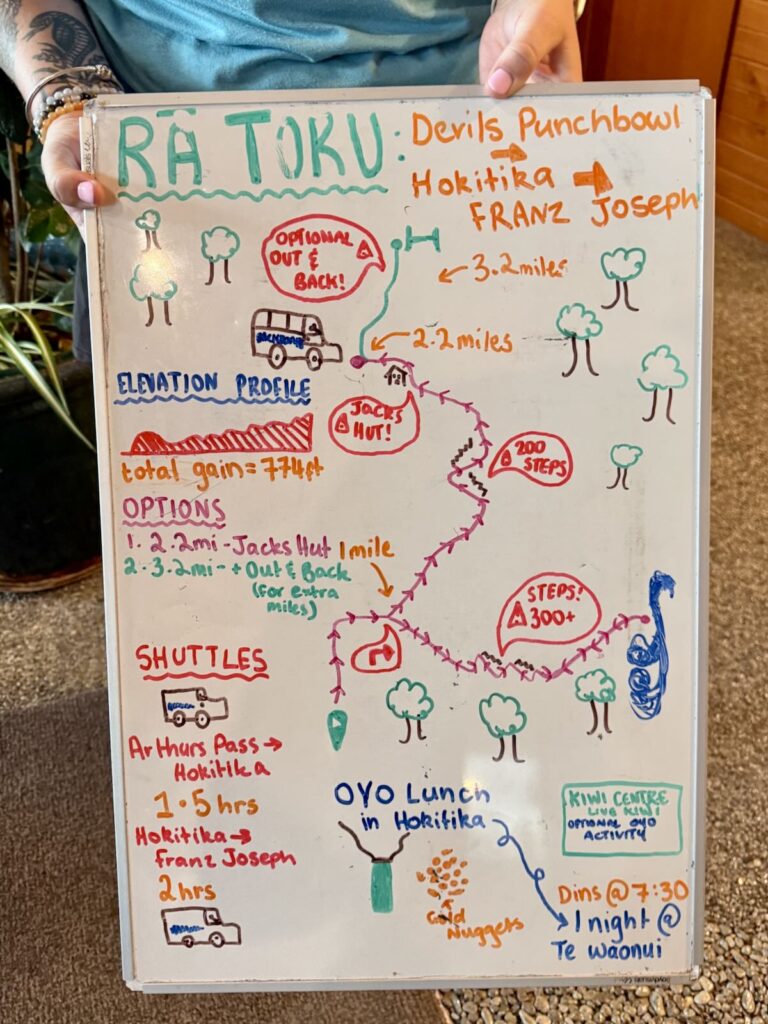 RĀ TORU:
Devils Punchbowl
Hokitika
FRANZ Joseph
OPTIONAL
OUT &
BACK!
3.2miles
2.2miles
BACKROADS
ELEVATION PROFILE
total gain = 774ft
JACKS
HUT!
200
STEPS
OPTIONS
1. 2.2mi - Jacks Hut
2. 3.2mi - + Out & Back
(for extra
miles)
1mile
STEPS!
300+
SHUTTLES
Arthurs Pass →
Hokitika
1.5hrs
Hokitika →
Franz Joseph
2hrs
OYO Lunch
in Hokitika
Gold
Nuggets
KIWI CENTRE
LIVE KIWI
OPTIONAL OYO
ACTIVITY
Dins @ 7:30
1 night @
Te Waonui